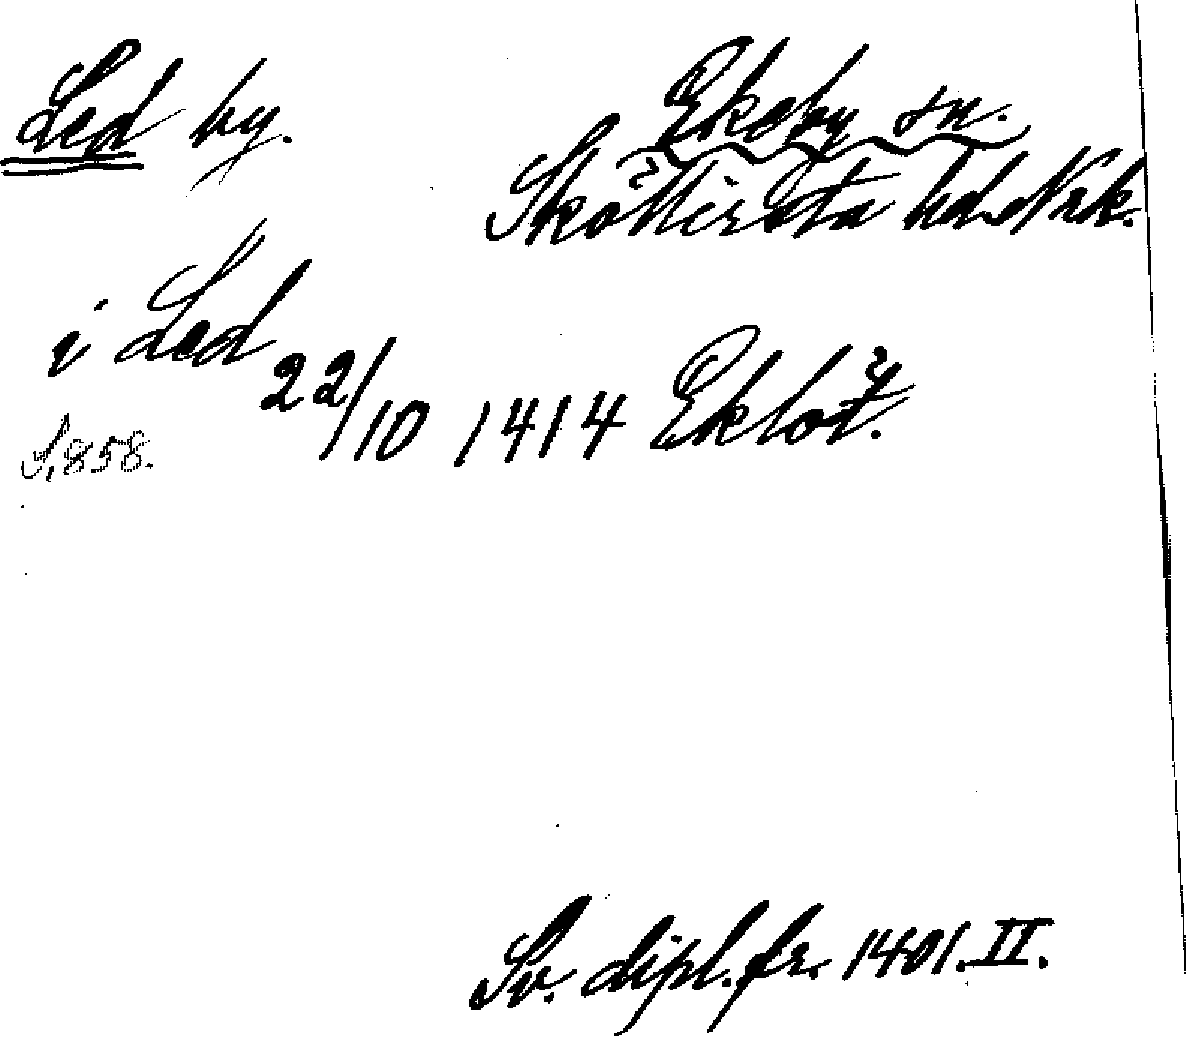 Led by.
Ekeby sn.
Sköllersta hd. Nrk.
i Led
22/10 1414 Eklöf.
S. 858.
Sv. dipl. fr. 1401. II.